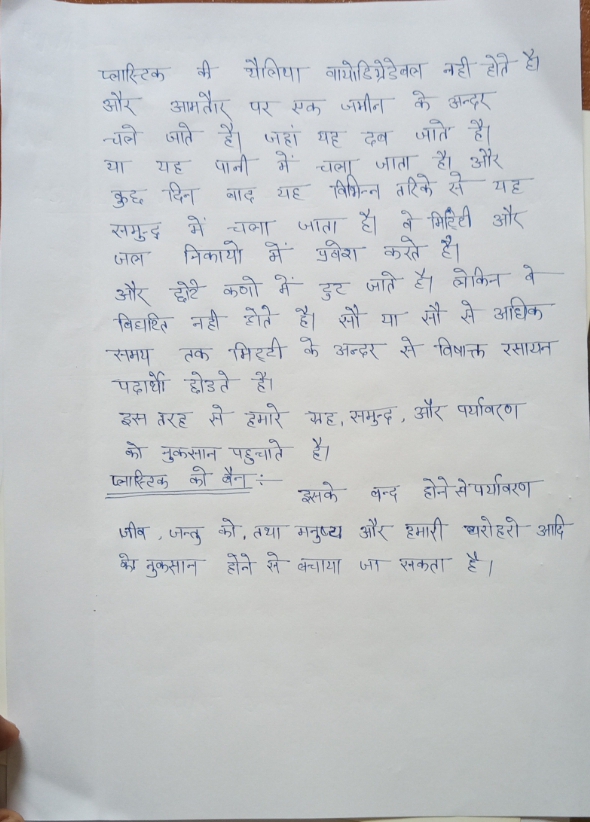 प्लास्टिक की थैलिया बायोडिग्रेडेबल नही होते है।
और आमतौर पर एक जमीन के अन्दर
चले जाते है। जहां यह दब जाते है।
या यह पानी में चला जाता है। और
कुछ दिन बाद यह विभिन्न तरिके से यह
समुन्द्र में चला जाता है। वे मिट्टी और
जल निकायो में प्रवेश करते है।
और छोटे कणो में टुट जाते है। लेकिन वे
विघटित नही होते है। सौ या सौ से अधिक
समय तक मिट्टी के अन्दर से विषाक्त रसायन
पदार्थो छोडते है।
इस तरह से हमारे ग्रह, समुन्द्र, और पर्यावरण
को नुकसान पहुचाते है।
प्लास्टिक को बैन :-
इसके बन्द होने से पर्यावरण
जीव, जन्तु को, तथा मनुष्य और हमारी धरोहरो आदि
को नुकसान होने से बचाया जा सकता है।